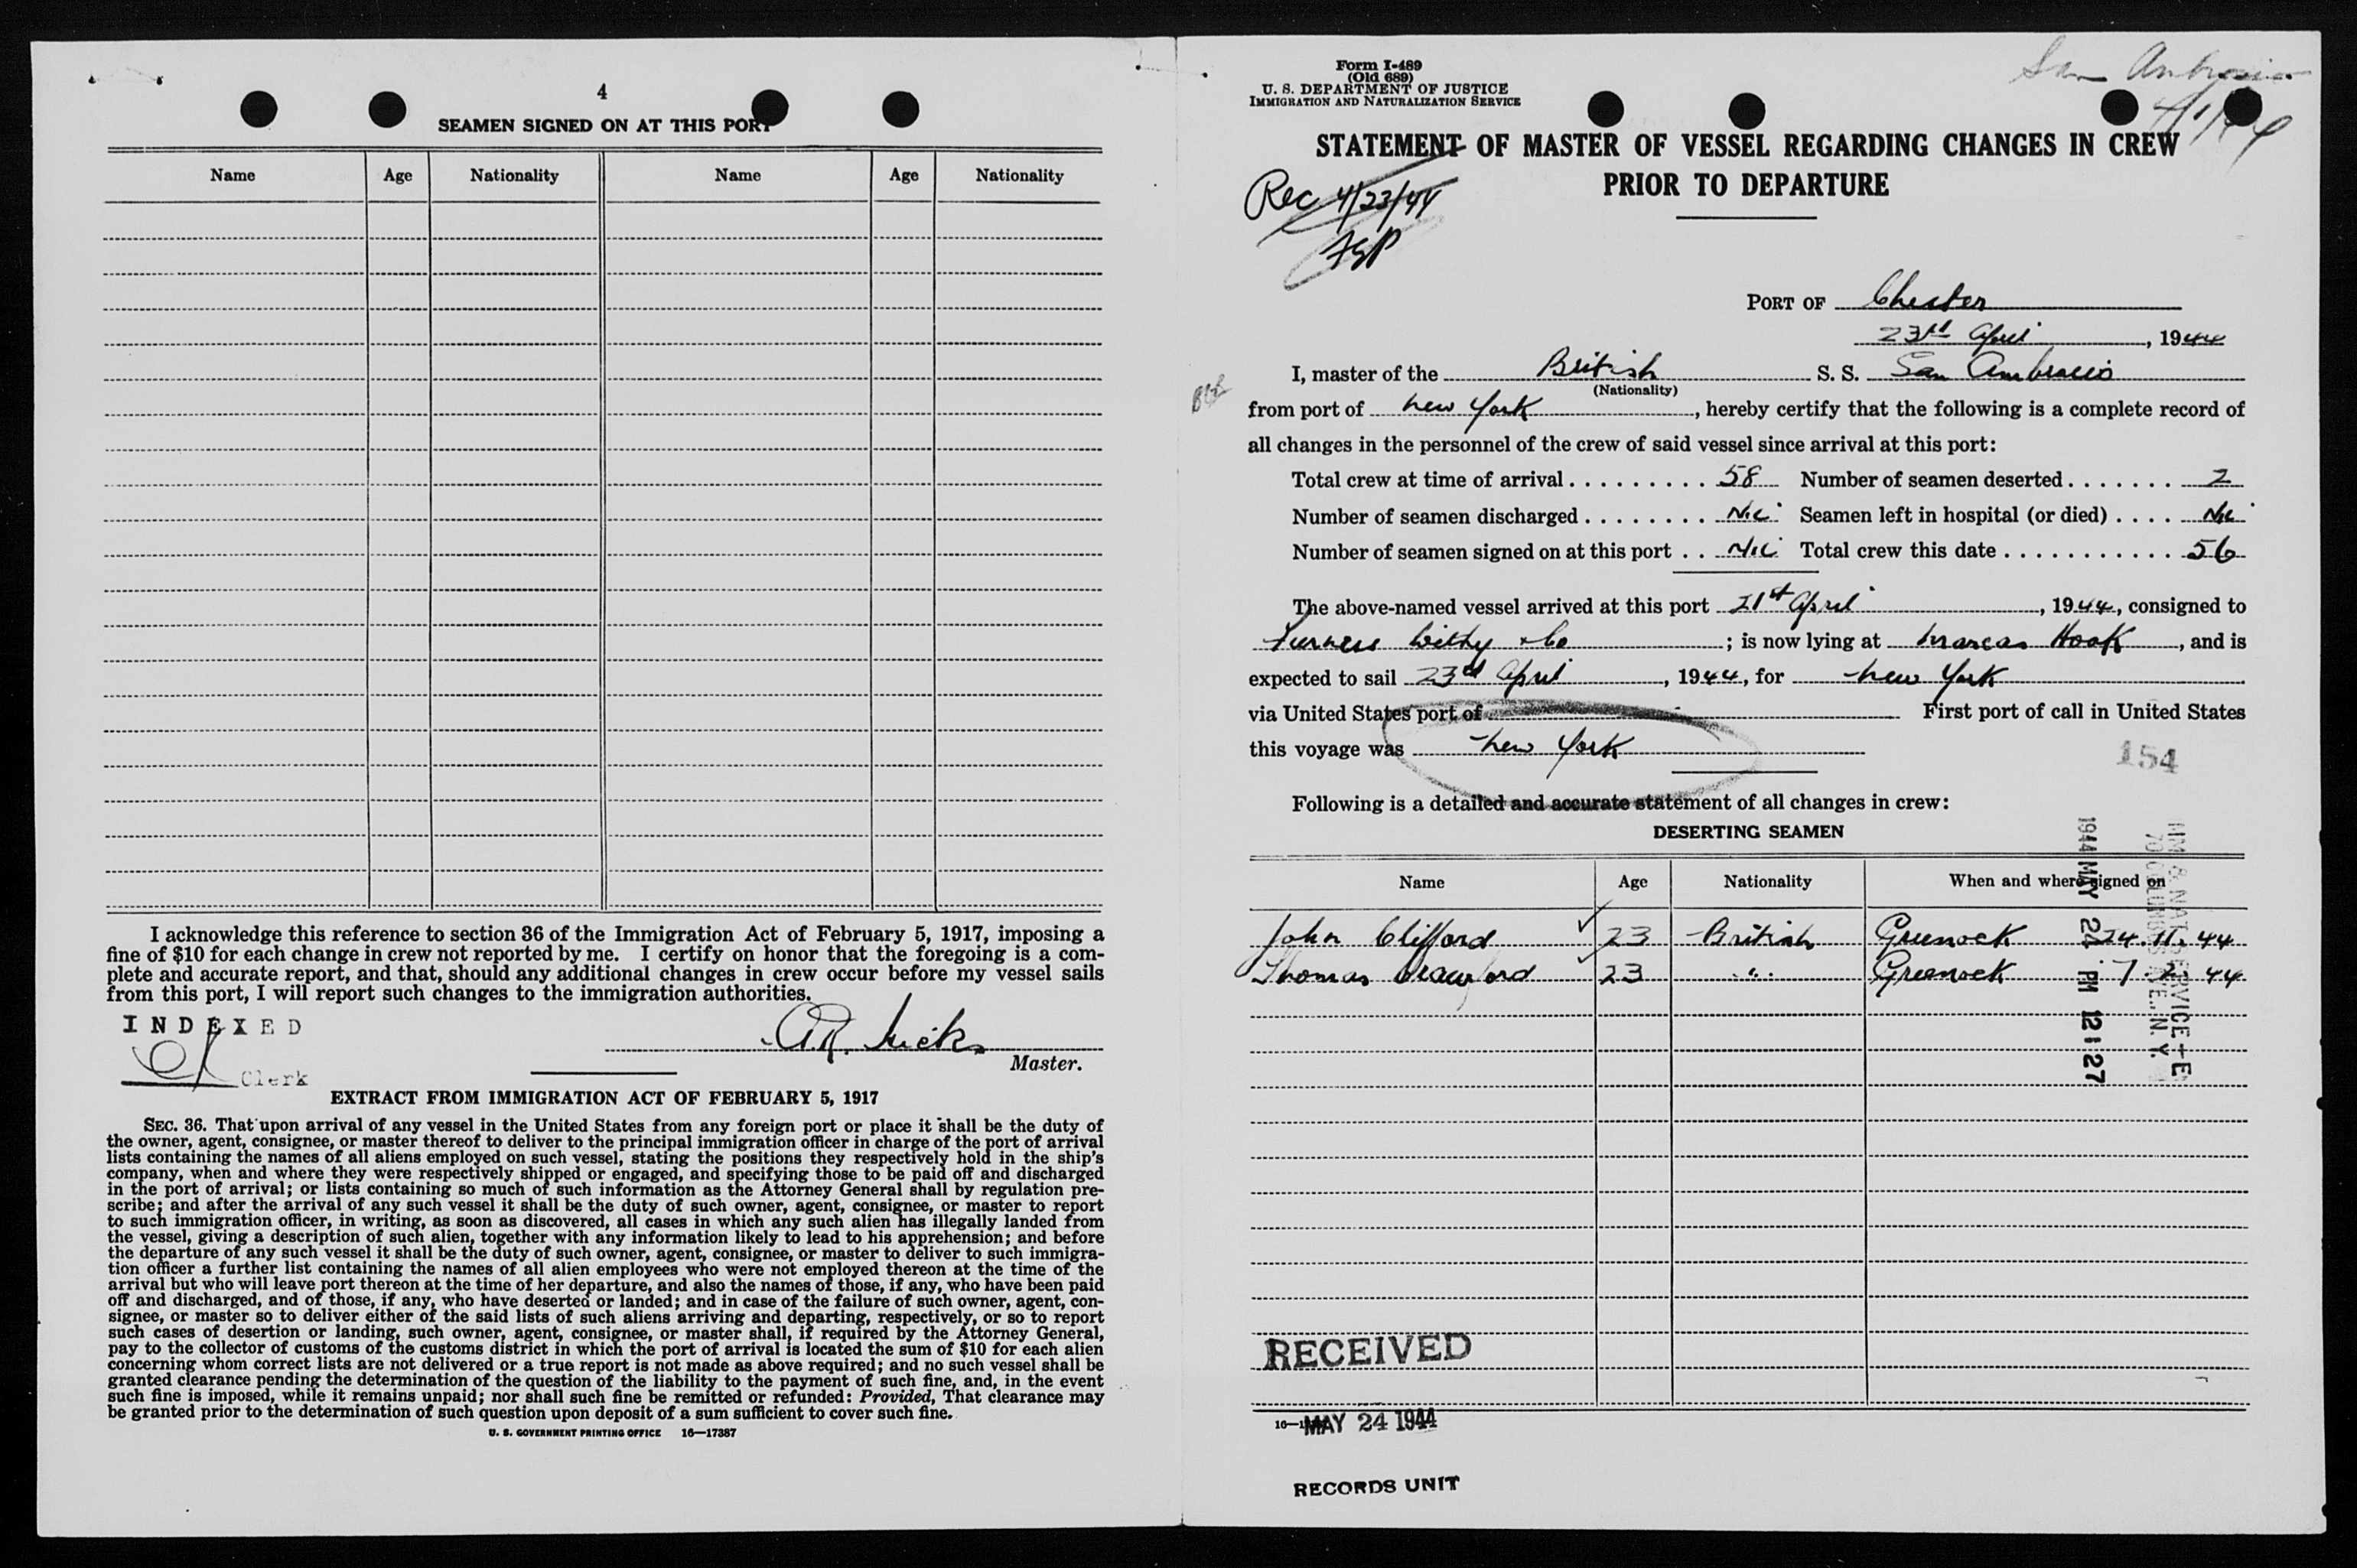 4
SEAMEN SIGNED ON AT THIS PORT
Name Age Nationality Name Age Nationality
I acknowledge this reference to section 36 of the Immigration Act of February 5, 1917, imposing a
fine of $10 for each change in crew not reported by me. I certify on honor that the foregoing is a com-
plete and accurate report, and that, should any additional changes in crew occur before my vessel sails
from this port, I will report such changes to the immigration authorities.
INDEXED
Clerk
A.R. Hicks
Master.
EXTRACT FROM IMMIGRATION ACT OF FEBRUARY 5, 1917
SEC. 36. That upon arrival of any vessel in the United States from any foreign port or place it shall be the duty of
the owner, agent, consignee, or master thereof to deliver to the principal immigration officer in charge of the port of arrival
lists containing the names of all aliens employed on such vessel, stating the positions they respectively hold in the ship's
company, when and where they were respectively shipped or engaged, and specifying those to be paid off and discharged
in the port of arrival; or lists containing so much of such information as the Attorney General shall by regulation pre-
scribe; and after the arrival of any such vessel it shall be the duty of such owner, agent, consignee, or master to report
to such immigration officer, in writing, as soon as discovered, all cases in which any such alien has illegally landed from
the vessel, giving a description of such alien, together with any information likely to lead to his apprehension; and before
the departure of any such vessel it shall be the duty of such owner, agent, consignee, or master to deliver to such immigra-
tion officer a further list containing the names of all alien employees who were not employed thereon at the time of the
arrival but who will leave port thereon at the time of her departure, and also the names of those, if any, who have been paid
off and discharged, and of those, if any, who have deserted or landed; and in case of the failure of such owner, agent, con-
signee, or master so to deliver either of the said lists of such aliens arriving and departing, respectively, or so to report
such cases of desertion or landing, such owner, agent, consignee, or master shall, if required by the Attorney General,
pay to the collector of customs of the customs district in which the port of arrival is located the sum of $10 for each alien
concerning whom correct lists are not delivered or a true report is not made as above required; and no such vessel shall be
granted clearance pending the determination of the question of the liability to the payment of such fine, and, in the event
such fine is imposed, while it remains unpaid; nor shall such fine be remitted or refunded: Provided, That clearance may
be granted prior to the determination of such question upon deposit of a sum sufficient to cover such fine.
U. S. GOVERNMENT PRINTING OFFICE 16—17387
Form I-489
(Old 689)
U. S. DEPARTMENT OF JUSTICE
IMMIGRATION AND NATURALIZATION SERVICE
San Ambrosio
STATEMENT OF MASTER OF VESSEL REGARDING CHANGES IN CREW
PRIOR TO DEPARTURE
Rec 4/23/44
PORT OF Chester
23rd April, 1944
I, master of the British S. S. San Ambrosio
(Nationality)
from port of New York, hereby certify that the following is a complete record of
all changes in the personnel of the crew of said vessel since arrival at this port:
Total crew at time of arrival . . . . . . . . . . 58 Number of seamen deserted . . . . . . . 2
Number of seamen discharged . . . . . . . . Nil Seamen left in hospital (or died) . . . . Nil
Number of seamen signed on at this port . . Nil Total crew this date . . . . . . . . . . . . 56
The above-named vessel arrived at this port 21st April, 1944, consigned to
Furness Withy & Co; is now lying at Marcas Hook, and is
expected to sail 23rd April, 1944, for New York
via United States port of First port of call in United States
this voyage was New York
154
Following is a detailed and accurate statement of all changes in crew:
DESERTING SEAMEN
Name Age Nationality When and where signed on
John Clifford 23 British Greenock 24. 44
Thomas Crawford 23 " Greenock 7. 2. 44
1944 MAY 24 PM 12 27
RECEIVED
MAY 24 1944
RECORDS UNIT